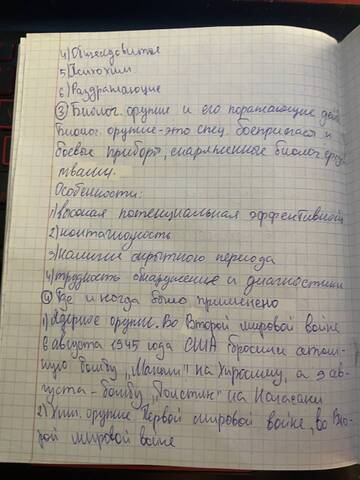 4) Общеядовитые
5) Психохим
6) Раздражающие
③ Биолог. оружие и его поражающие дей
Биолог. оружие - это спец. боеприпасы и
боевые приборы, снаряженные биолог. сред
твами.
Особенности:
1) высокая потенциальная эффективность
2) контагиозность
3) наличие скрытного периода
4) трудность обнаружения и диагностики
④ Где и когда было применено
1) Ядерное оружие. Во Второй мировой войне
6 августа 1945 года США бросили атом-
ную бомбу „Малыш" на Хиросиму, а 9 ав-
густа - бомбу „Толстяк" на Нагасаки
2) Хим. оружие Первой мировой войне, во Вто-
рой мировой войне